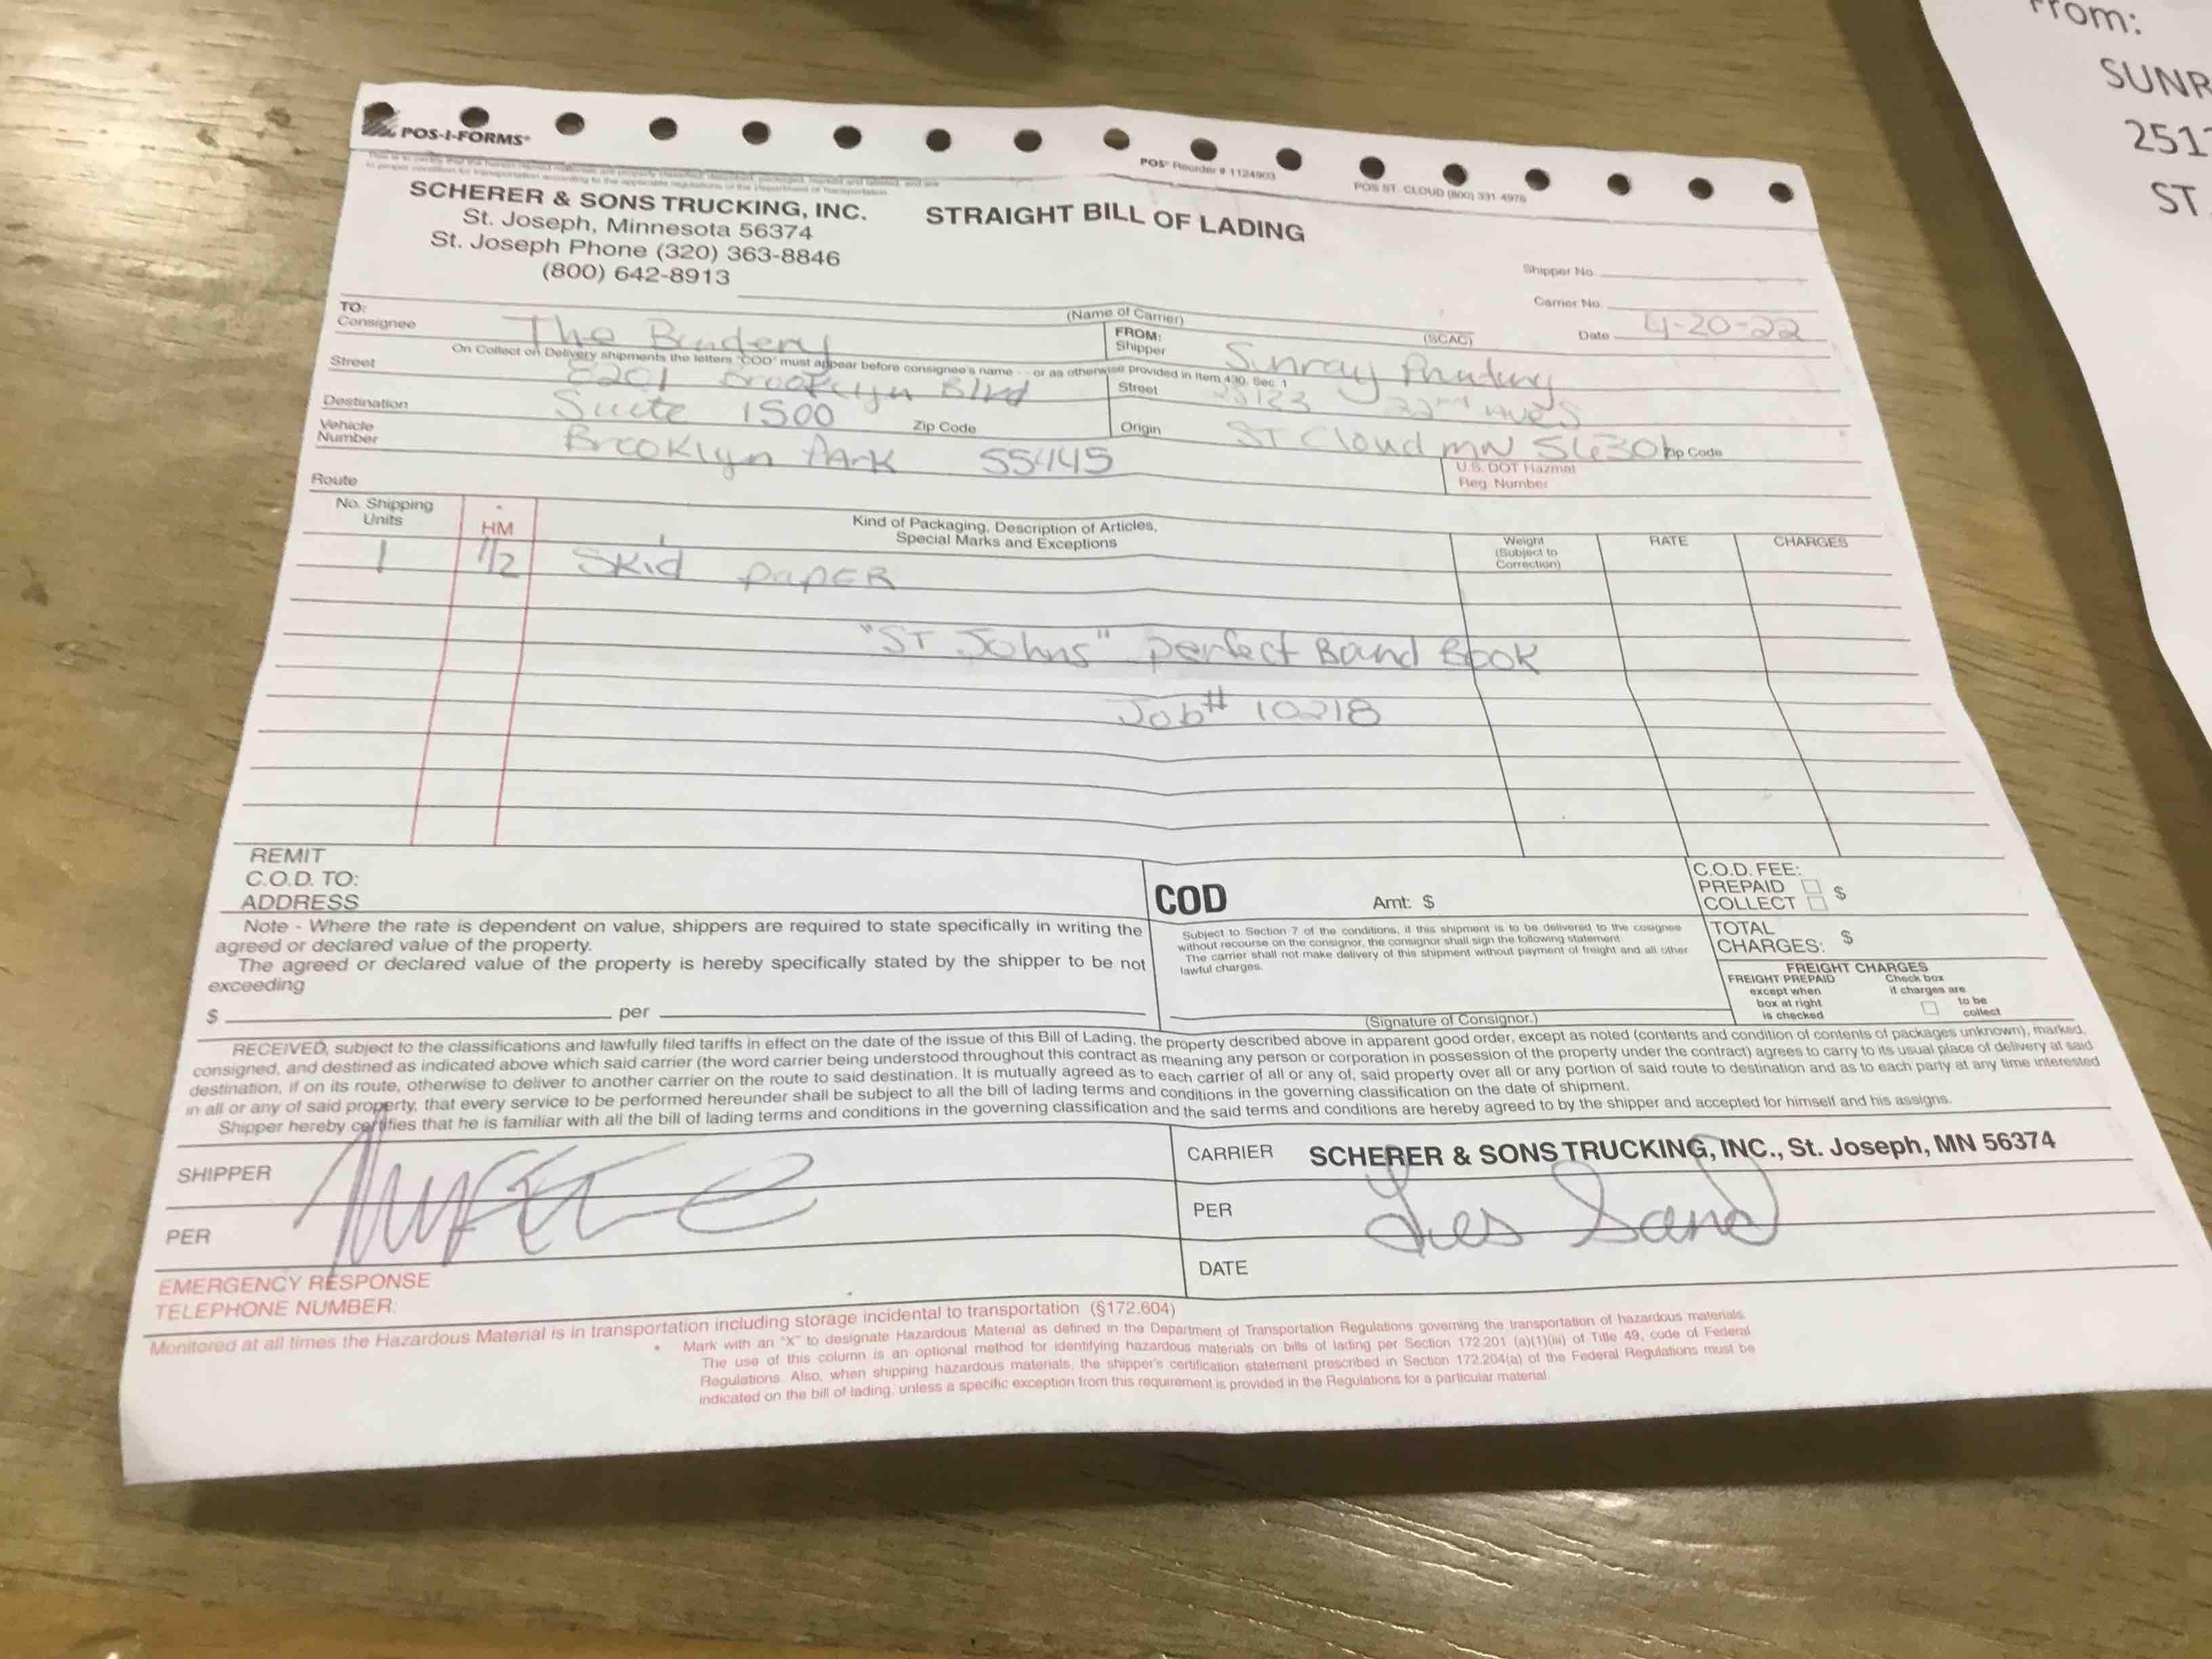 POS-I-FORMS
POS® Reorder # 1124903
POS ST. CLOUD (800) 331-4976
SCHERER & SONS TRUCKING, INC.
STRAIGHT BILL OF LADING
St. Joseph, Minnesota 56374
St. Joseph Phone (320) 363-8846
(800) 642-8913
Shipper No.
Carrier No.
(Name of Carrier)
(SCAC)
Date 4-20-22
TO:
Consignee The Bindery
FROM:
Shipper Sunray Printing
On Collect on Delivery shipments the letters "COD" must appear before consignee's name - - or as otherwise provided in Item 430, Sec. 1
Street 8201 Brooklyn Blvd
Street 22nd Ave S
Destination Suite 1500 Zip Code
Origin ST Cloud MN 56301 Zip Code
Vehicle
Number Brooklyn Park 55445
U.S. DOT Hazmat
Reg. Number
Route
No. Shipping
Units
*
HM
Kind of Packaging, Description of Articles,
Special Marks and Exceptions
Weight
(Subject to
Correction)
RATE
CHARGES
1 1/2 Skid PAPER
"ST Johns" perfect Bound Book
Job# 10218
REMIT
C.O.D. TO:
ADDRESS
COD Amt: $
C.O.D. FEE:
PREPAID $
COLLECT
Note - Where the rate is dependent on value, shippers are required to state specifically in writing the
agreed or declared value of the property.
The agreed or declared value of the property is hereby specifically stated by the shipper to be not
exceeding
$ per
Subject to Section 7 of the conditions, if this shipment is to be delivered to the cosignee
without recourse on the consignor, the consignor shall sign the following statement
The carrier shall not make delivery of this shipment without payment of freight and all other
lawful charges.
(Signature of Consignor.)
TOTAL
CHARGES: $
FREIGHT CHARGES
FREIGHT PREPAID
except when
box at right
is checked
Check box
if charges are
to be
collect
RECEIVED, subject to the classifications and lawfully filed tariffs in effect on the date of the issue of this Bill of Lading, the property described above in apparent good order, except as noted (contents and condition of contents of packages unknown), marked,
consigned, and destined as indicated above which said carrier (the word carrier being understood throughout this contract as meaning any person or corporation in possession of the property under the contract) agrees to carry to its usual place of delivery at said
destination, if on its route, otherwise to deliver to another carrier on the route to said destination. It is mutually agreed as to each carrier of all or any of, said property over all or any portion of said route to destination and as to each party at any time interested
in all or any of said property, that every service to be performed hereunder shall be subject to all the bill of lading terms and conditions in the governing classification on the date of shipment.
Shipper hereby certifies that he is familiar with all the bill of lading terms and conditions in the governing classification and the said terms and conditions are hereby agreed to by the shipper and accepted for himself and his assigns.
SHIPPER
PER
CARRIER SCHERER & SONS TRUCKING, INC., St. Joseph, MN 56374
PER Les Sand
DATE
EMERGENCY RESPONSE
TELEPHONE NUMBER:
Monitored at all times the Hazardous Material is in transportation including storage incidental to transportation (§172.604)
* Mark with an "X" to designate Hazardous Material as defined in the Department of Transportation Regulations governing the transportation of hazardous materials.
The use of this column is an optional method for identifying hazardous materials on bills of lading per Section 172.201 (a)(1)(iii) of Title 49, code of Federal
Regulations. Also, when shipping hazardous materials, the shipper's certification statement prescribed in Section 172.204(a) of the Federal Regulations must be
indicated on the bill of lading, unless a specific exception from this requirement is provided in the Regulations for a particular material.
From:
SUNR
251
ST